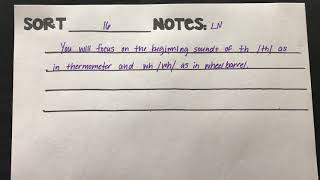 SORT 16 NOTES: LN
You will focus on the beginning sounds of th /th/ as
in thermometer and wh /wh/ as in wheelbarrel.